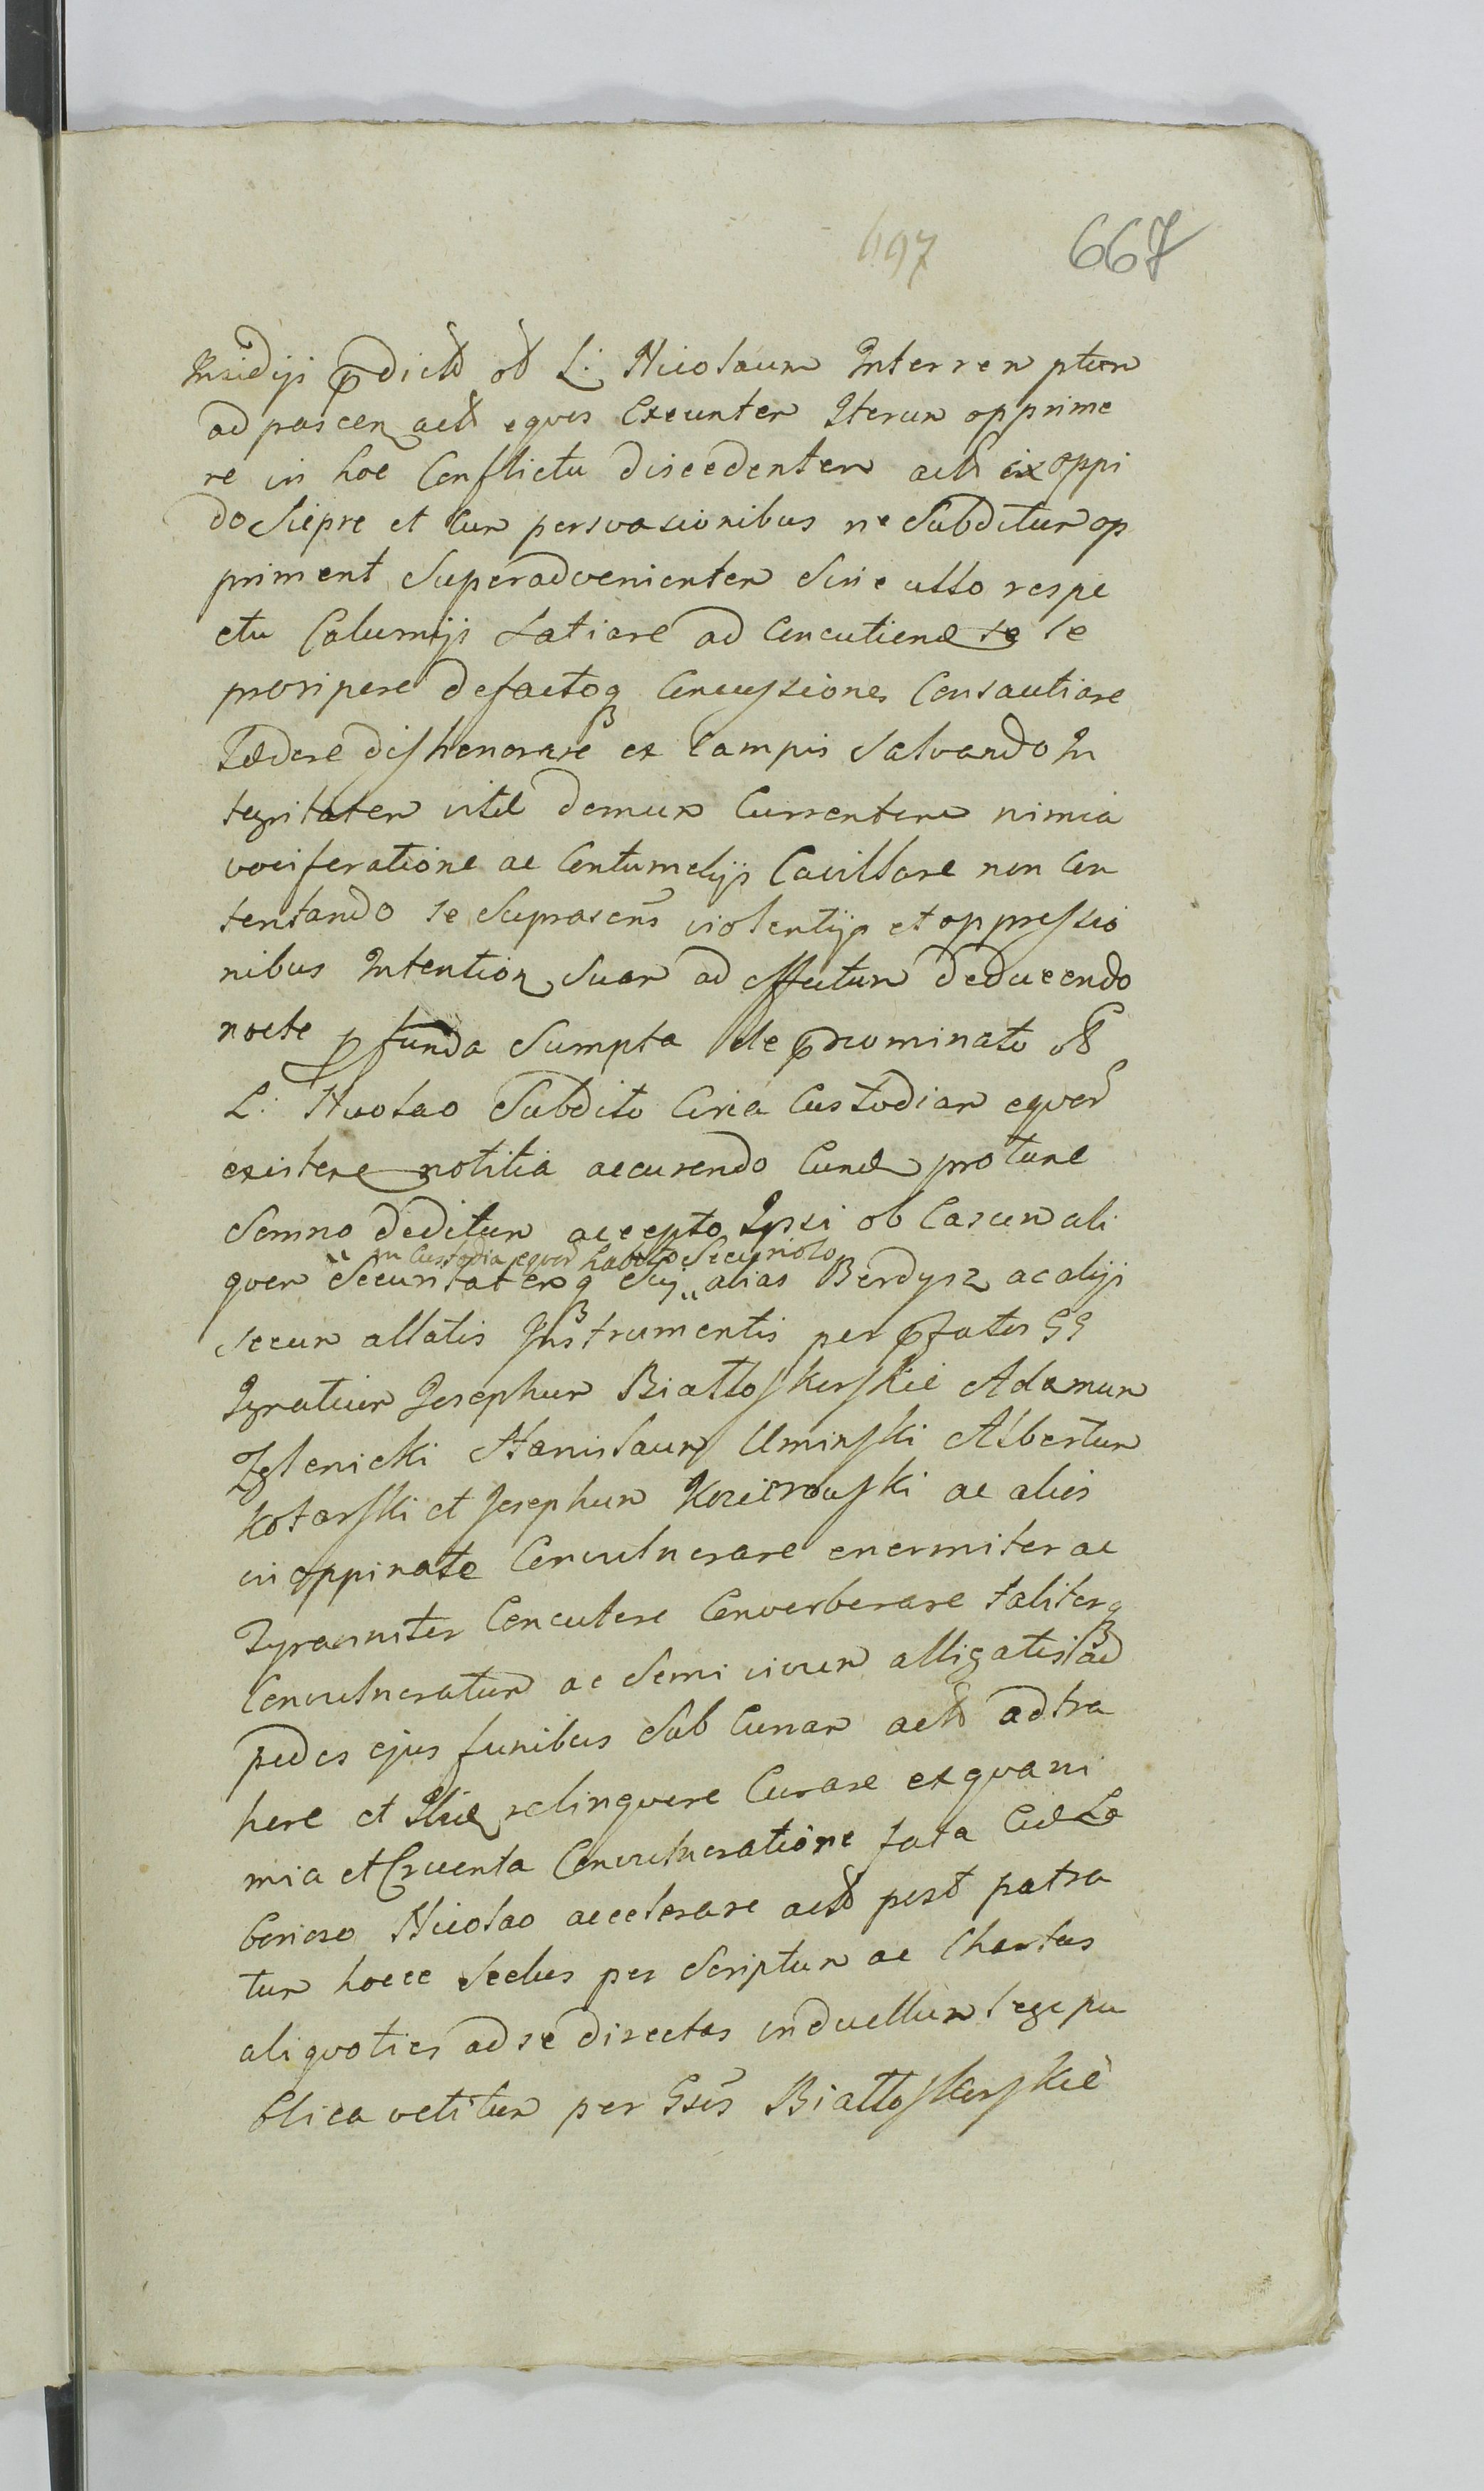 697 667
Insidijs p̃dictũ olim L: Nicolaum Interrem ptum
ad pascen actũ equos Exeuntem Iterum opprime
re in hoc Conflictu discedentem actũ ex oppi
do Siepre et Cum persvasionibus ne Subditum op
priment Superadvenientem Sine ullo respe
ctu Calumijs Satiare ad Concutiend se
proripere defactoq Concussiones Consautiare
Lædere dishonorareq ex Campis Salvando In
tegritatem vitæ domum Currentem nimia
vociferatione ac Contumelijs Cavillare non Con
tentando se Suprascris violentijs et oppressio
nibus Intention Suam ad effectum deducendo
nocte profunda Sumpta de prænominato olim
L: Nicolao Subdito Circa Custodiam equorũ
existere notitia accurendo Eund pro tunc
Somno deditum accepto Ipsi ob Casum ali
quem Securitatemq Sui „ in Custodia equorũ habito Securiolo „ alias Berdysz ac alijs
secum allatis Instrumentis per p̃fatos GG
Ignatium Josephum Białłoskorskie Adamum
Zglenicki Stanislaum Uminski Albertum
Kotarski et Josephum ac alios
inoppinate Convulnerare enormiter ac
Tyranniter Concutere Converberare taliterq
Convulneratum ac Semi vivum alligatis ad
pedes ejus funibus Sub Cunam actũ adtra
here et Illic relinquere Curare ex qua ni
mia et Cruenta Convulneratione fata Eid La
borioso Nicolao accelerare actũ post patra
tum hocce Scelus per Scriptum ac Chartas
aliquoties ad se directas in duellum lege pu
blica vetitum per Gsos Białłoskorskie